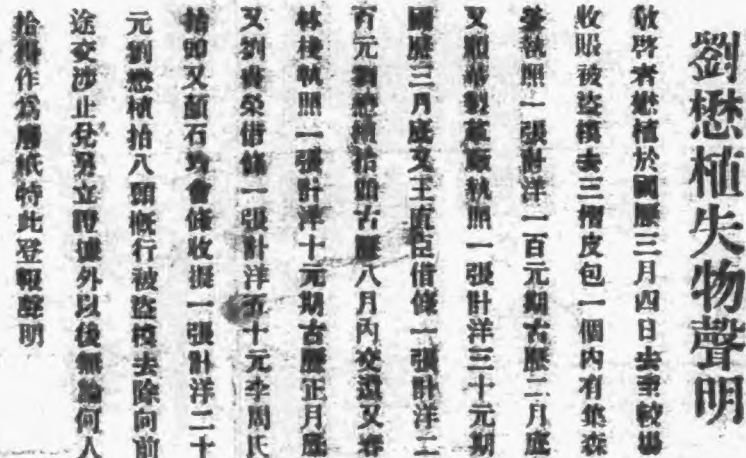 劉懋植失物聲明
敬啓者懋植於國歷三月四日去東較場
收賬被盜模去三摺皮包一個內有集森
執照一張計洋一百元期古歷二月底
又順 執照一張計洋三十元期
國歷三月底又王 臣借條一張計洋二
百元劉懋植拾頭古歷八月內交還又春
林棧執照一張計洋十元期古歷正月底
又劉 榮借條一張計洋五十元李周氏
拾頭又顏石 會條收據一張計洋二十
元劉懋植拾八頭概行被盜模去除向前
途交涉止兌另立證據外以後無論何人
拾得作為廢紙特此登報聲明